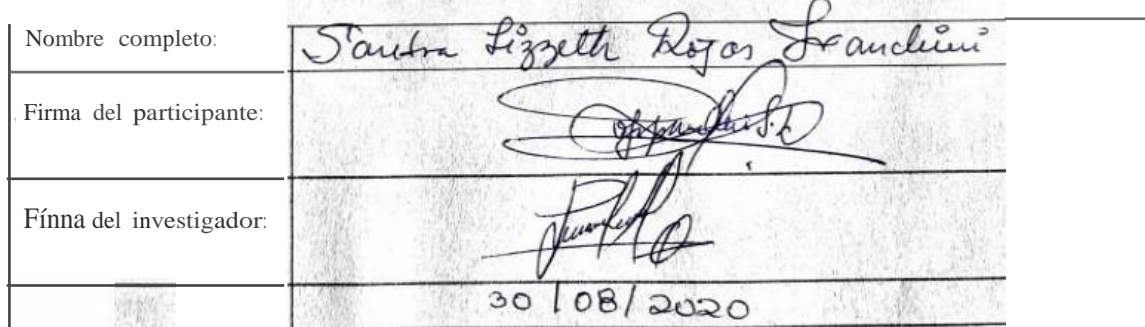 Nombre completo: Santra Lizzeth Rojas Franchini
Firma del participante:
Fínna del investigador:
30/08/2020